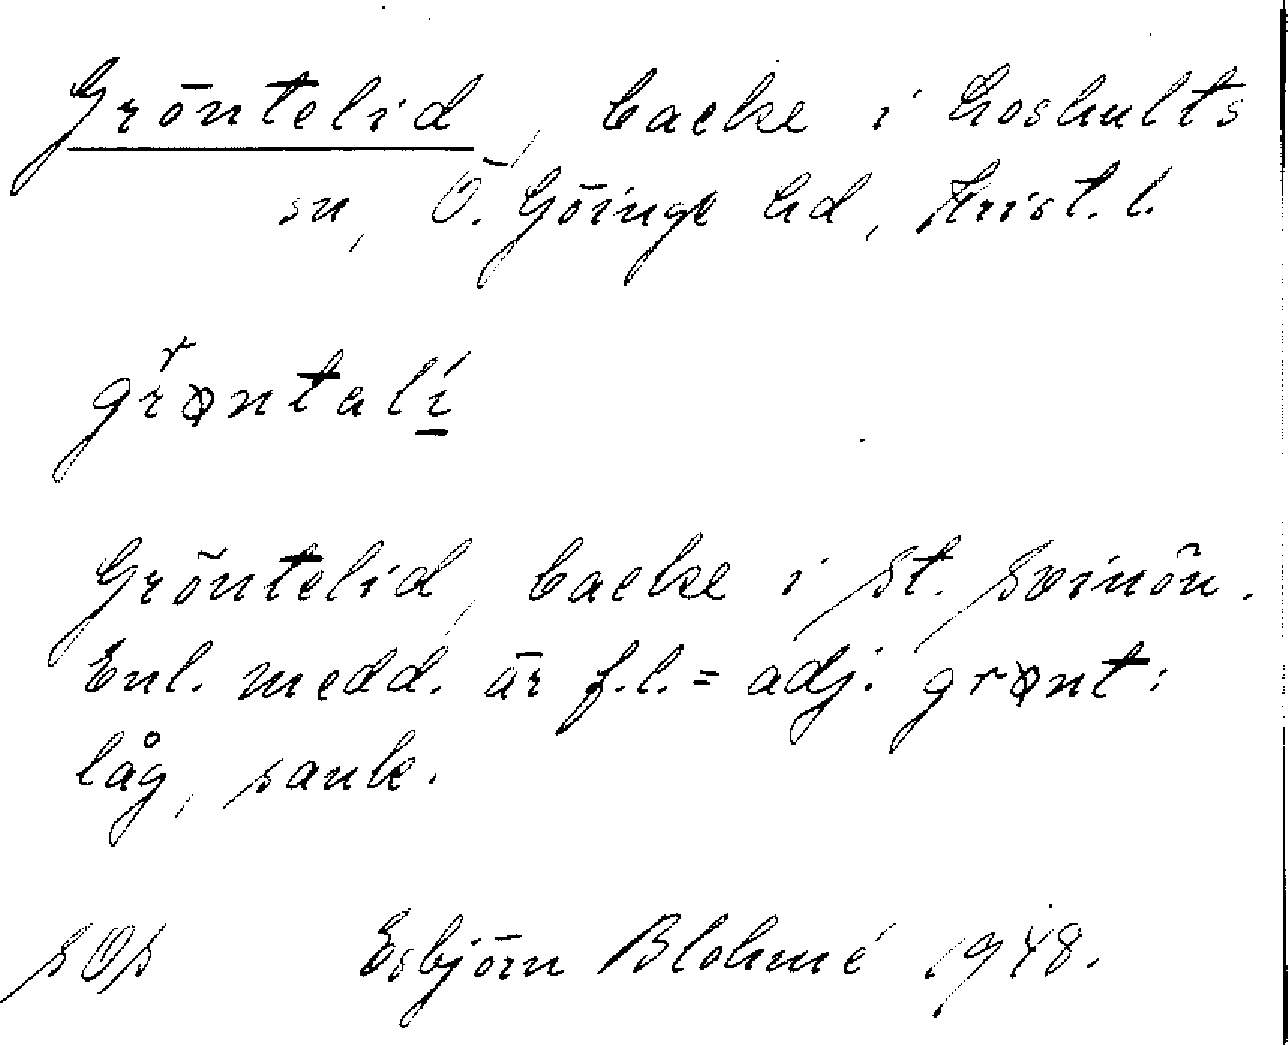 Gröntelid, backe i Loshults
sn, Ö. Göinge hd, Krist. l.
grøntalí
Gröntelid, backe i St. Svinön.
Enl. medd. är f.l. = adj. grønt:
låg, sank.
SOS Esbjörn Blohmé 1948.